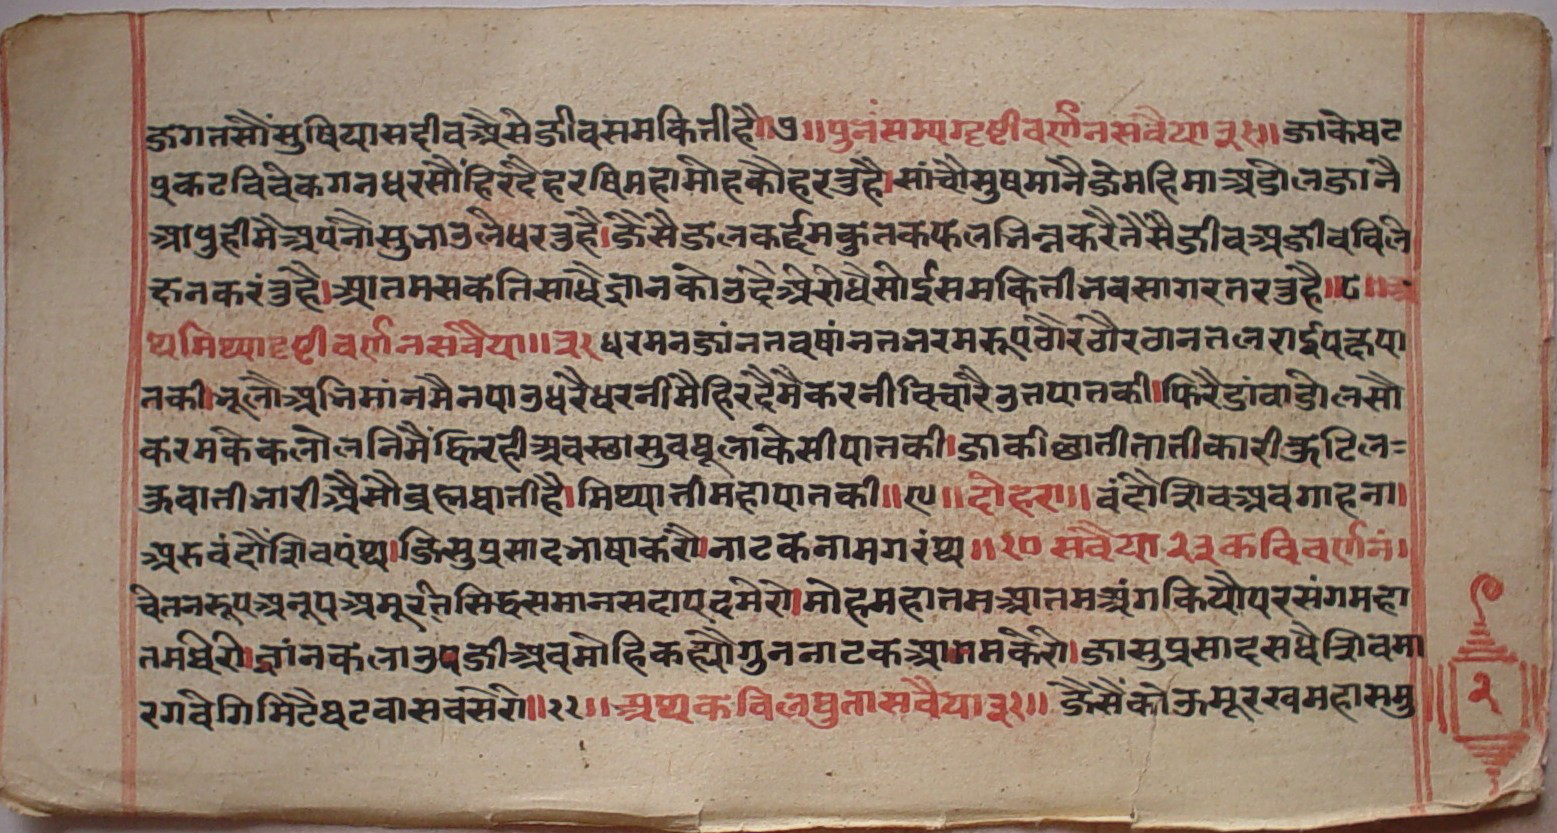 जगतसौंसुषियासदीवअैसेजीवसमकितीहै॥७॥पुनंसम्यग्दृष्टीवर्णनसवैया३१॥जाकेघट
प्रकटविवेकगनधरसौंहिरदैहरषिमहामोहकौहरतुहै।सांचौसुषमानैजेमहिमाअडोलजानै
आपुहीमैअपनौसुभाउलैधरतुहै।जैसैजलकर्दमकुतकफलभिन्नकरैतैसैजीवअजीवविलै
छनकरंतुहै।आतमसकतिसाधैज्ञानकौउदैअैरोधैसोईसमकितीभवसागरतरतुहै॥८॥अ
थमिथ्यादृष्टीवर्णनसवैया॥३१धरमनजांनतवषांनतभरमरूपठौरठौरठानतलराईपछपा
तकी।भूलौअभिमांनमैनपाउधरैधरनीमैहिरदैमैकरनीविचारैउतपातकी।फिरैडांवाडोलसौ
करमकेकलोलनिमैंह्विरहीअवस्थासुवघूलाकेसीपातकी।जाकीछातीतातीकारीकुटिल=
कुवातीभारीअैसौब्रह्मघातीहै।मिथ्यातीमहापातकी॥९॥दोहरा॥वंदौशिवअवगाहना।
अरुवंदौंशिवपंथ।जिसुप्रसादभाषाकरौ।नाटकनामगरंथ॥१०सवैया२३कविवर्णनं।
चेतनरूपअनूपअमूरतिसिद्धसमानसदापदमेरो।मोहमहातमआतमअंगकियौपरसंगमहा
तमघेरो।ज्ञांनकलाउपजीअवमोहिकह्यौगुननाटकआतमकेरो।जासुप्रसादसधैशिवमा
रगवेगिमिटैघटवासवसेरो॥११॥अथकविलघुतासवैया३१॥जैसैंकोऊमूरखमहासमु
२